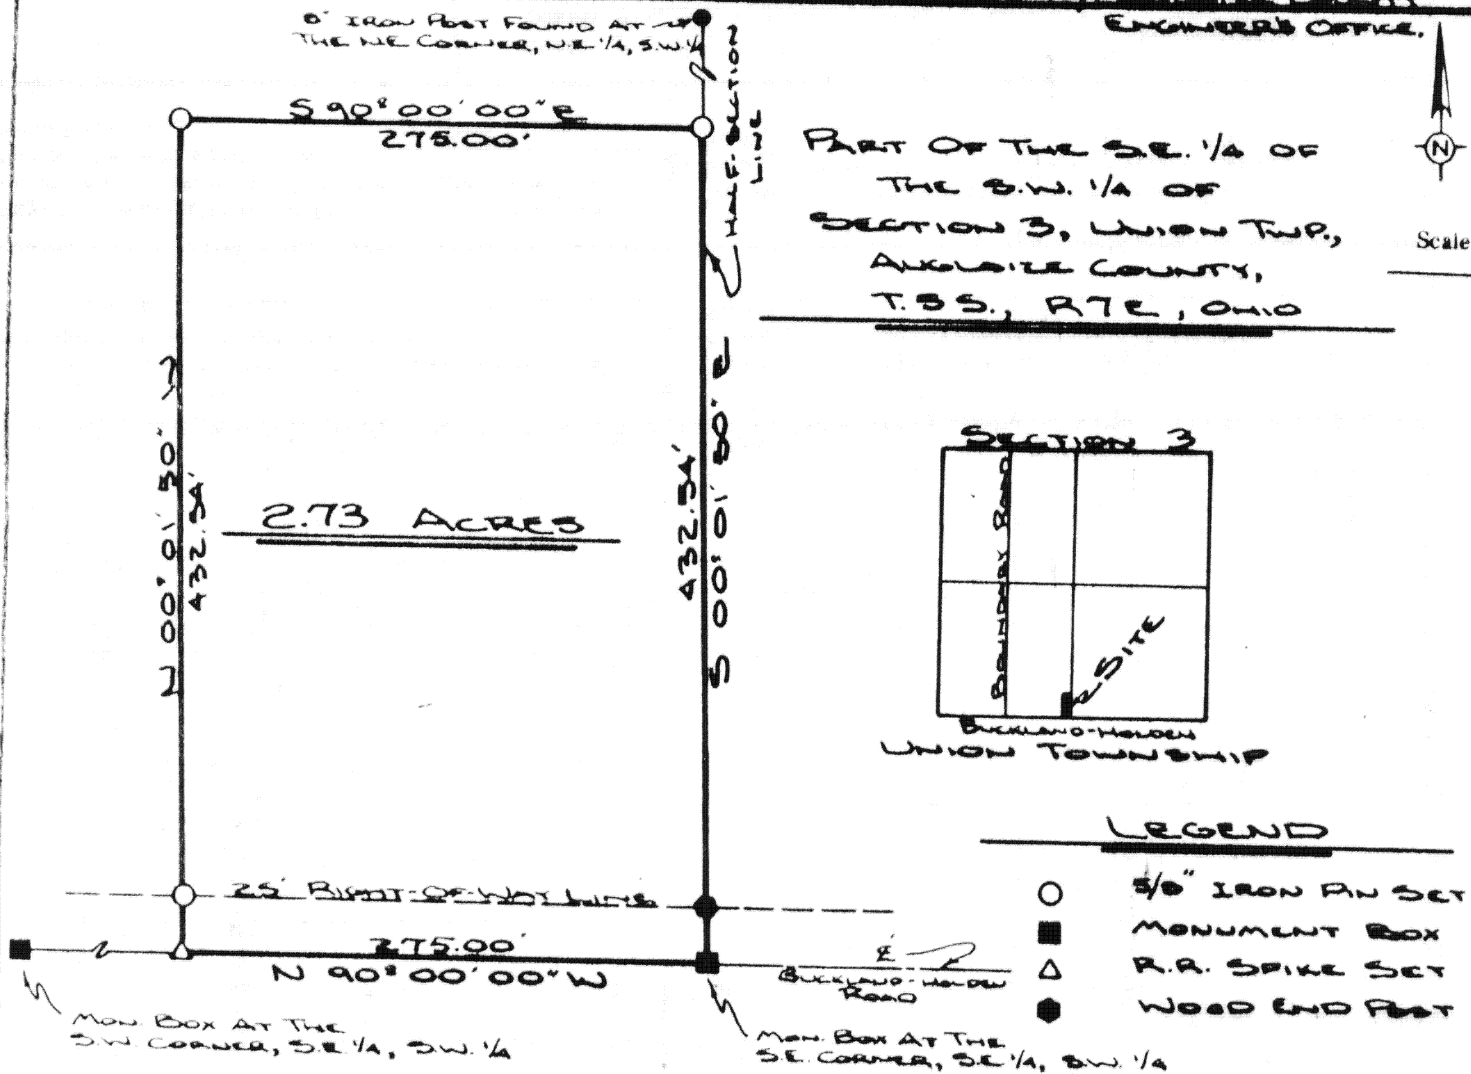 ENGINEER'S OFFICE.
8" IRON POST FOUND AT
THE NE CORNER, N.E. 1/4, S.W. 1/4
HALF-SECTION
LINE
S 90° 00' 00" E
275.00'
N
Scale
PART OF THE S.E. 1/4 OF
THE S.W. 1/4 OF
SECTION 3, UNION TWP.,
AUGLAIZE COUNTY,
T.5S., R7E, OHIO
N 00° 01' 50" W
432.54'
2.73 ACRES
432.54'
S 00° 01' 50" E
SECTION 3
BOUNDARY ROAD
SITE
BUCKLAND-HOLDEN
UNION TOWNSHIP
LEGEND
5/8" IRON PIN SET
MONUMENT BOX
R.R. SPIKE SET
WOOD END POST
25' RIGHT-OF-WAY LINE
275.00'
N 90° 00' 00" W
℄
BUCKLAND-HOLDEN
ROAD
MON. BOX AT THE
S.W. CORNER, S.E. 1/4, S.W. 1/4
MON. BOX AT THE
S.E. CORNER, S.E. 1/4, S.W. 1/4